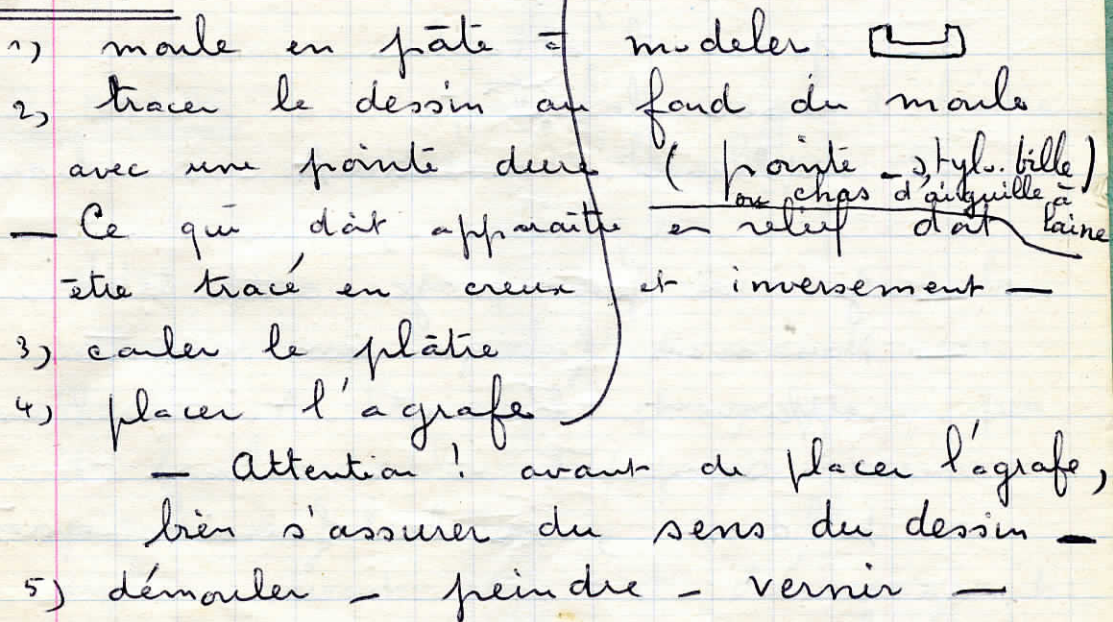 1) moule en pâte à modeler
2) tracer le dessin au fond du moule
avec une pointe dure (pointe stylo. bille)
ou chas d'aiguille à
laine
— Ce qui doit apparaître en relief doit
être tracé en creux et inversement —
3) couler le plâtre
4) placer l'agrafe
— Attention ! avant de placer l'agrafe,
bien s'assurer du sens du dessin —
5) démouler - peindre - vernir —